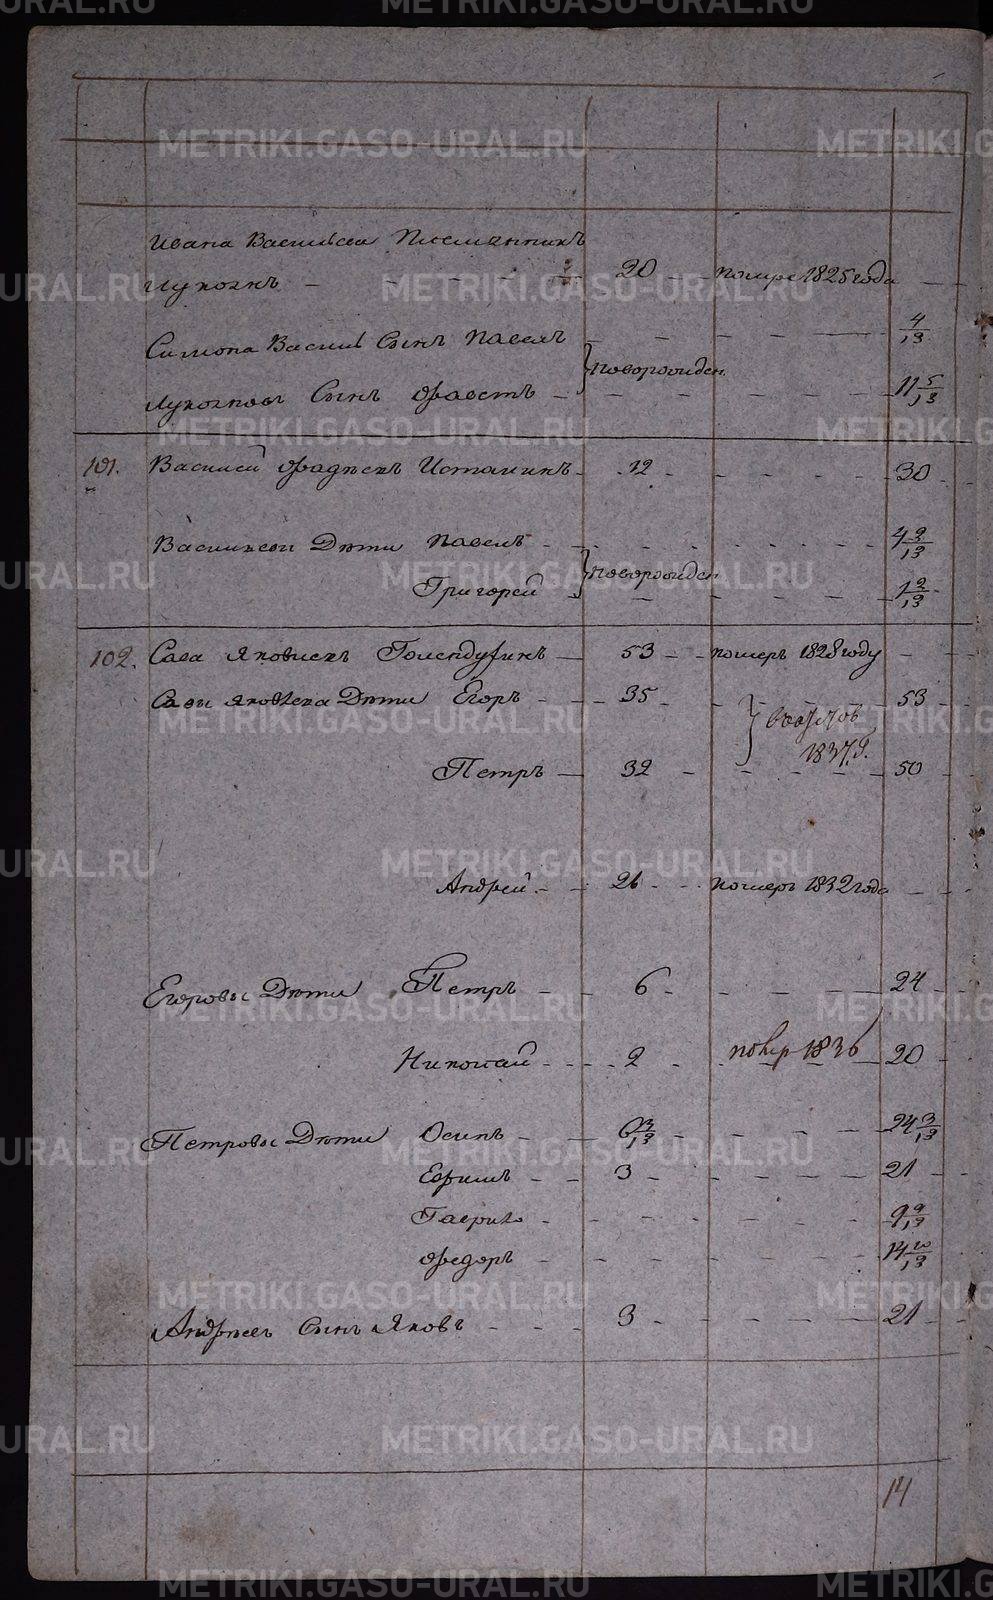 METRIKI.GASO-URAL.RU
Ивана Васильева Племянникъ
Лукоянъ - - - - 20 - - помиръ 1825 года - -
Симиона Васильева Сынъ Павелъ - - - 4/13
новорожден.
Лукояновъ Сынъ Фавстъ - - - - - 11 5/13
101. Василей Фадѣевъ Истоминъ - 12 - - - - 30
Васильевы Дѣти Павелъ - - - - 4 9/13
новорожден
Григорей - - - - 1 2/13
102. Сава Яковлевъ Голендухинъ - 53 - - померъ 1828 году - -
Савы Яковлева Дѣти Егоръ - - 35 - - - - 53
1837. г.
Петръ - 32 - - - - 50
Андрей - - 26 - - померъ 1832 года - -
Егоровы Дѣти Петръ - - 6 - - - - 24
Николай - - - 2 - помер 1836 20
Петровы Дѣти Осипъ - - 6 3/13 - - - 24 3/13
Ефимъ - - 3 - - - - 21
Гаврило - - - - - 9 9/13
Федоръ - - - - - 14 10/13
Андреевъ Сынъ Яковъ - - - 3 - - - 21
14